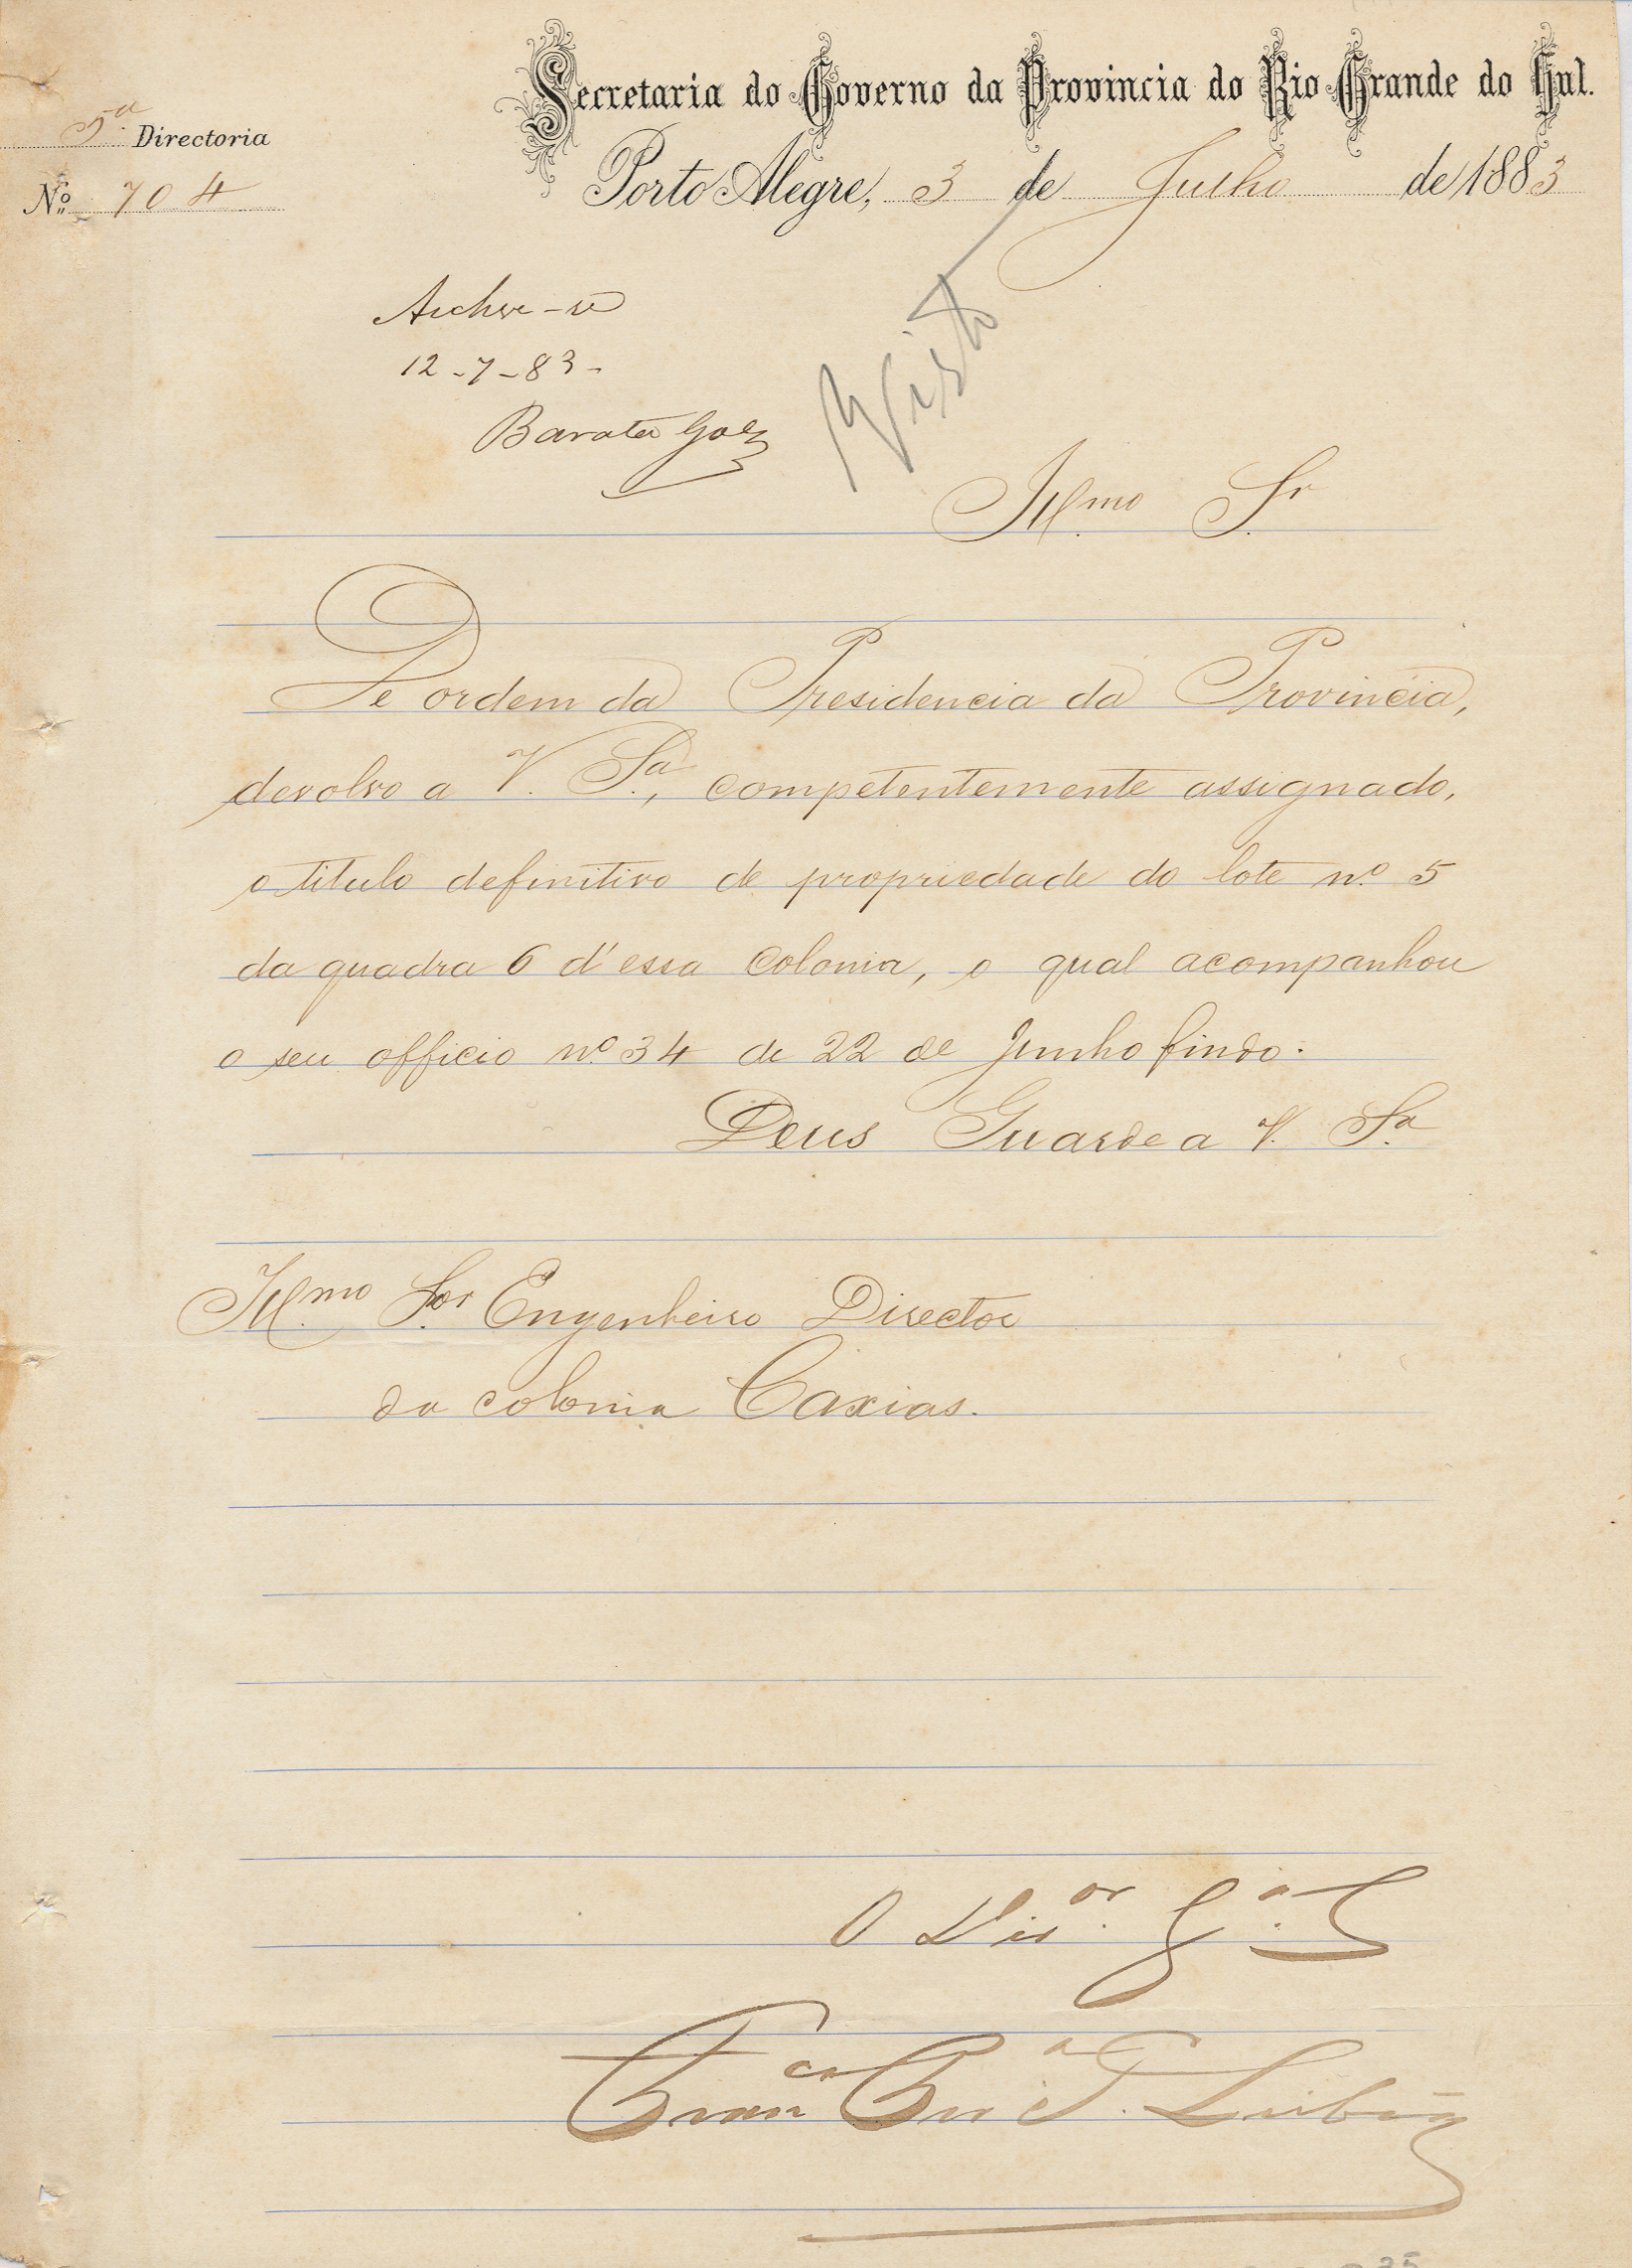 Secretaria do Governo da Provincia do Rio Grande do Sul.
5.ª Directoria
Nº 704
Porto Alegre, 3 de Julho de 1883
Archive-se
12-7-83-
Barata Góes
Visto
Ill.mo S.r
De ordem da Presidencia da Provincia,
devolvo a V. S.ª, competentemente assignado,
o titulo definitivo de propriedade do lote nº 5
da quadra 6 d'essa colonia, o qual acompanhou
o seu officio nº 34 de 22 de Junho findo.
Deus Guarde a V. S.ª
Ill.mo S.or Engenheiro Director
da colonia Caxias.
O Dir.or G.al